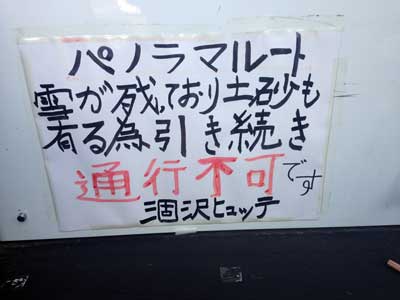 パノラマルート
雪が残っており土砂も
有る為引き続き
通行不可です
涸沢ヒュッテ